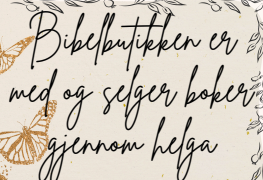 Bibelbutikken er
med og selger bøker
gjennom helga